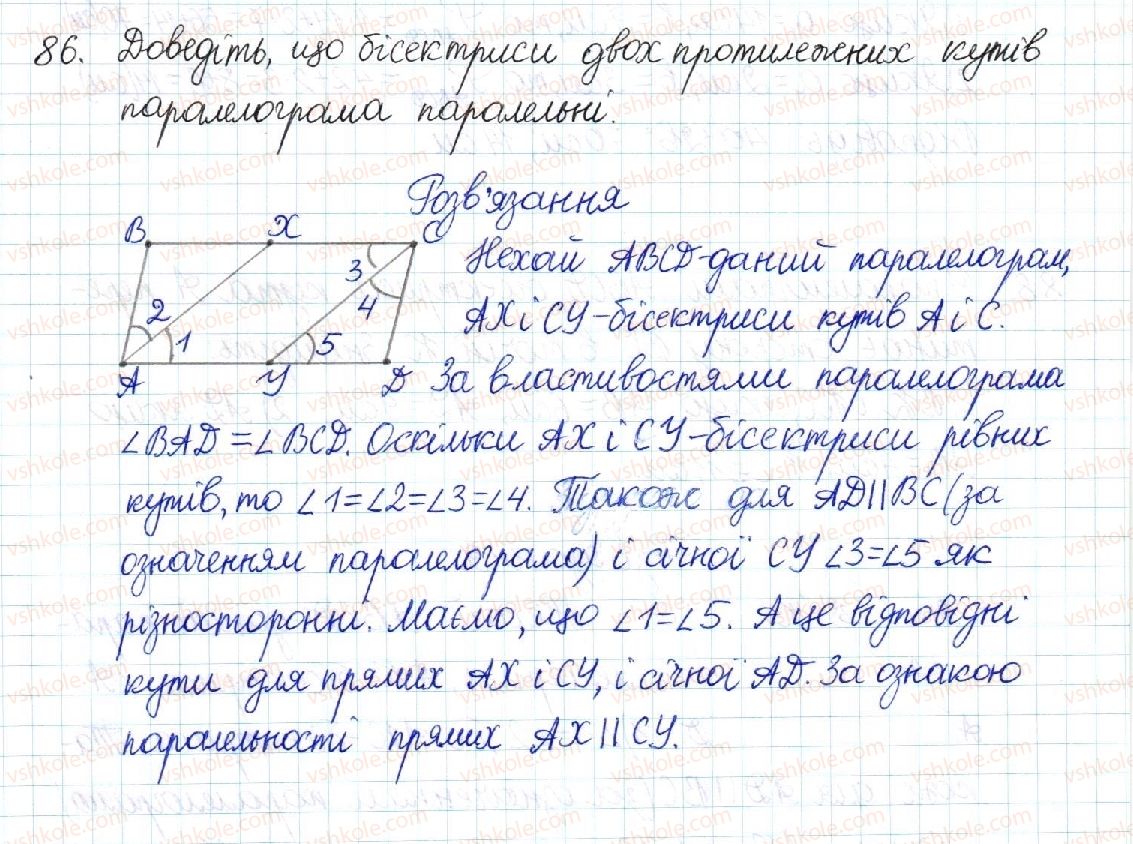 86. Доведіть, що бісектриси двох протилежних кутів
паралелограма паралельні.
Розв'язання
B X C
3
4
2
1
5
A Y D
Нехай ABCD-даний паралелограм,
AX і CY-бісектриси кутів A і C.
За властивостями паралелограма
∠BAD=∠BCD. Оскільки AX і CY-бісектриси рівних
кутів, то ∠1=∠2=∠3=∠4. Також для AD||BC (за
означенням паралелограма) і січної CY ∠3=∠5 як
різносторонні. Маємо, що ∠1=∠5. А це відповідні
кути для прямих AX і CY, і січної AD. За ознакою
паралельності прямих AX||CY.
vshkole.com